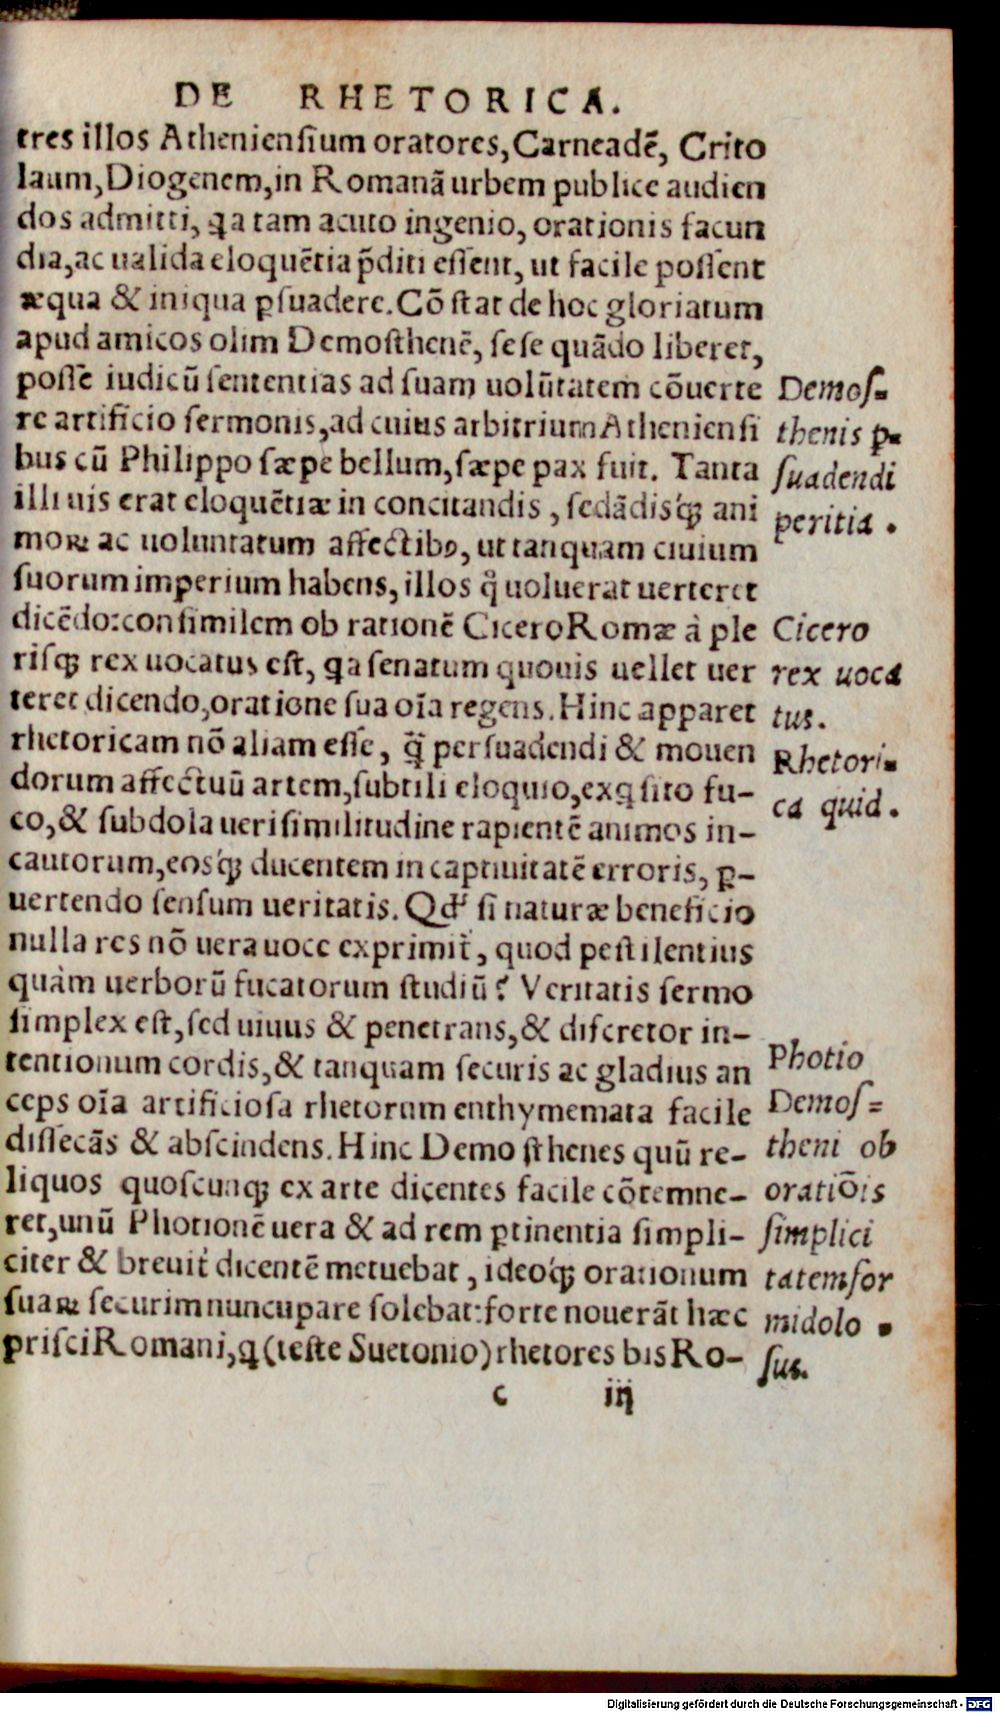 DE RHETORICA.
tres illos Atheniensium oratores, Carneadē, Crito
laum, Diogenem, in Romanā urbem publice audien
dos admitti, ꝗa tam acuto ingenio, orationis facun
dia, ac ualida eloquētia p̄diti essent, ut facile possent
æqua & iniqua ꝑsuadere. Cōstat de hoc gloriatum
apud amicos olim Demosthenē, sese quādo liberet,
posse iudicū sententias ad suam uolūtatem cōuerte
re artificio sermonis, ad cuius arbitrium Atheniensi
bus cū Philippo sæpe bellum, sæpe pax fuit. Tanta
illi uis erat eloquētiæ in concitandis, sedādisq́ꝫ ani
moꝝ ac uoluntatum affectibꝰ, ut tanquam ciuium
suorum imperium habens, illos q̊ uoluerat uerteret
dicēdo: consimilem ob rationē Cicero Romæ à ple
risqꝫ rex uocatus est, ꝗa senatum quouis uellet uer
teret dicendo, oratione sua oīa regens. Hinc apparet
rhetoricam nō aliam esse, q̄ꝫ persuadendi & mouen
dorum affectuū artem, subtili eloquio, exꝗsito fu-
co, & subdola uerisimilitudine rapientē animos in-
cautorum, eosq́ꝫ ducentem in captiuitatē erroris, ꝑ-
uertendo sensum ueritatis. Qđ si naturæ beneficio
nulla res nō uera uoce exprimit᷑, quod pestilentius
quàm uerborū fucatorum studiū? Veritatis sermo
simplex est, sed uiuus & penetrans, & discretor in-
tentionum cordis, & tanquam securis ac gladius an
ceps oīa artificiosa rhetorum enthymemata facile
dissecās & abscindens. Hinc Demosthenes quū re-
liquos quoscunqꝫ ex arte dicentes facile cōtemne-
ret, unū Photionē uera & ad rem ꝑtinentia simpli-
citer & breuit᷑ dicentē metuebat, ideoq́ꝫ orationum
suaꝝ securim nuncupare solebat: forte nouerāt hæc
prisci Romani, ꝗ (teste Suetonio) rhetores bis Ro-
c iij
Demos-
thenis ꝑ-
suadendi
peritia.
Cicero
rex uoca
tus.
Rhetori-
ca quid.
Photio
Demos=
theni ob
oratiōis
simplici
tatem for
midolo
sus.
Digitalisierung gefördert durch die Deutsche Forschungsgemeinschaft - DFG